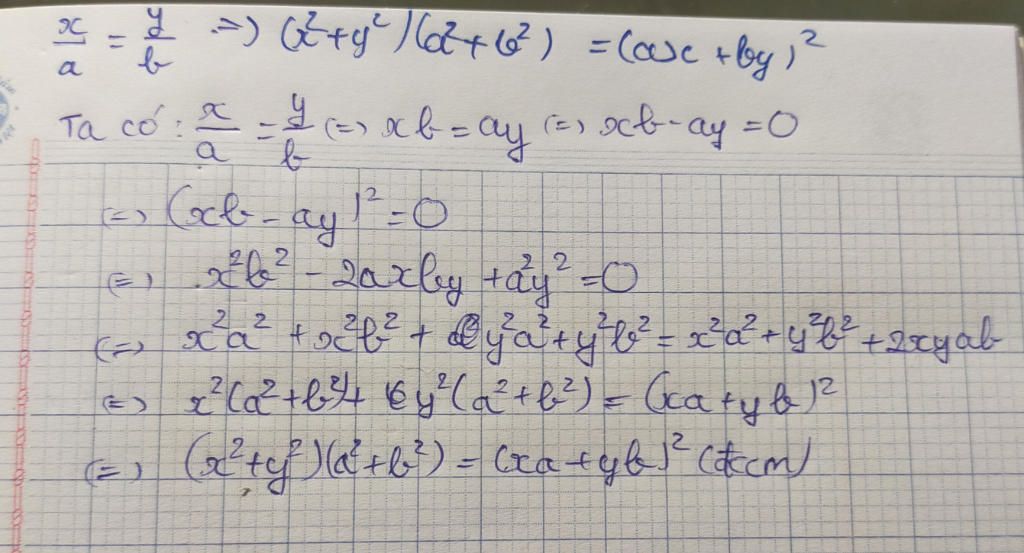 x/a = y/b => (x²+y²)(a²+b²) = (ax+by)²
Ta có: x/a = y/b <=> xb = ay <=> xb - ay = 0
<=> (xb - ay)² = 0
<=> x²b² - 2axby + a²y² = 0
<=> x²a² + x²b² + y²a² + y²b² = x²a² + y²b² + 2xyab
<=> x²(a²+b²) + y²(a²+b²) = (xa+yb)²
<=> (x²+y²)(a²+b²) = (xa+yb)² (đccm)